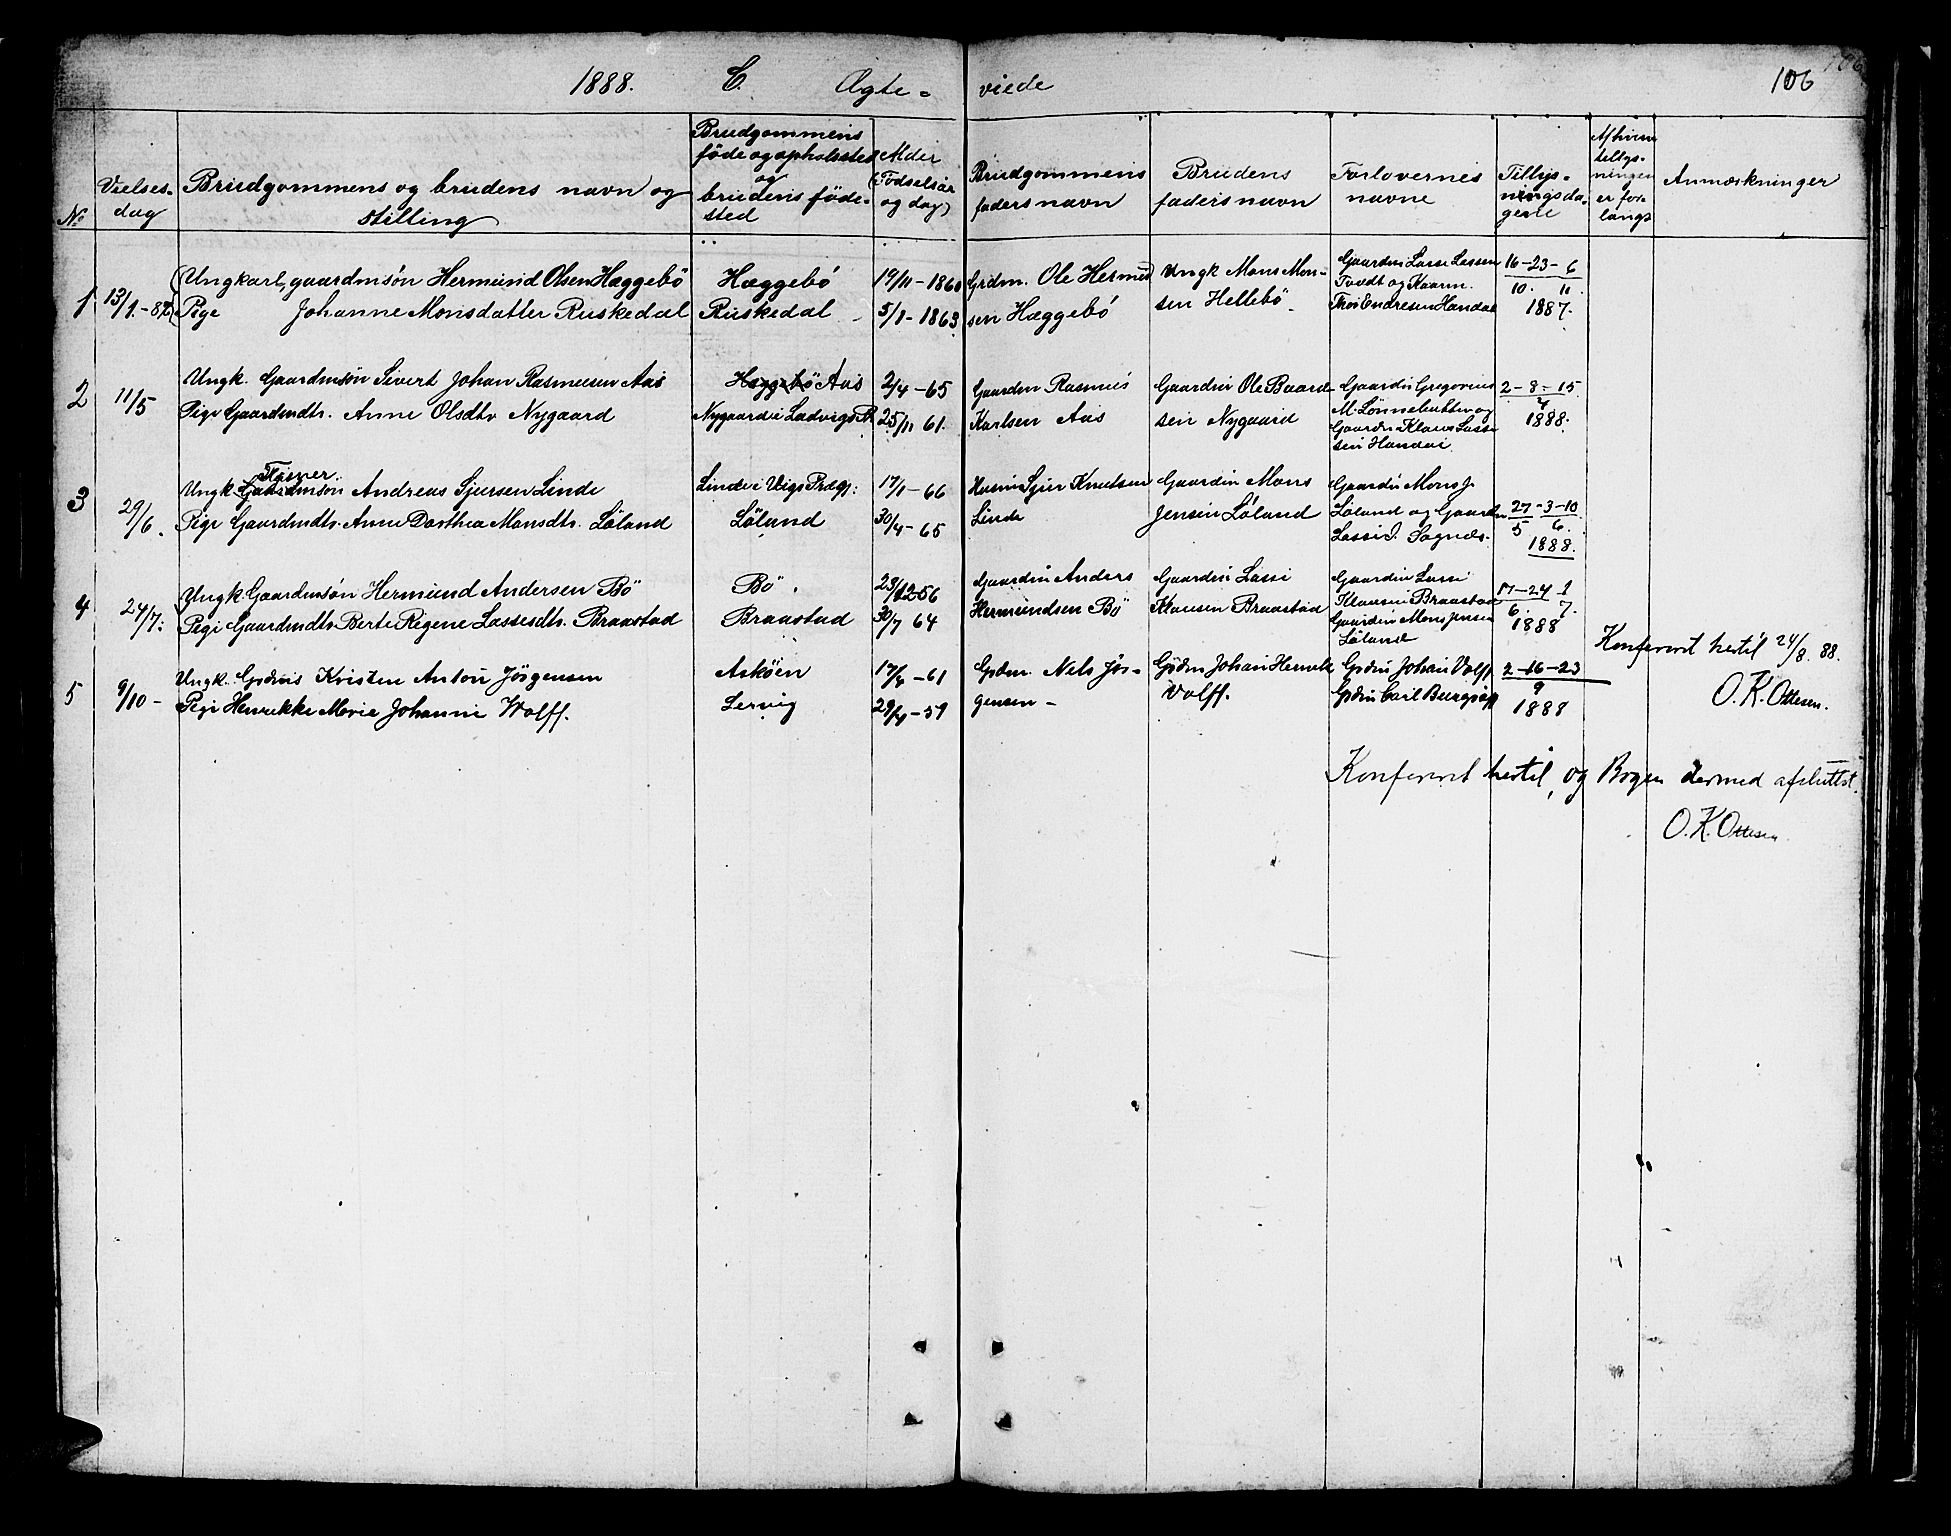 1888. C. Ægte- viede 106
№ Vielses-dag Brudgommens og brudens navn og stilling Brudgommens föde og opholssted og brudens födested Alder (Födselsår og dag) Brudgommens faders navn Brudens faders navn Forlovernes navne Tillysningsdagene Anmærkninger
1 13/1-88 Ungkarl, gaardmsön Hermund Olsen Hæggebö Hæggebö 19/11-1860 Grdm. Ole Hermundsen Hæggebö Ungk Mons Monsen Hellebö Gaardm Lasse Lassen Tvedt og Kaarm. Thor Endresen Handal 16-23-6
Pige Johanne Monsdatter Ruskedal Ruskedal 5/1-1863 10. 11. 1887.
2 11/5 Ungk. Gaardmsön Sivert Johan Rasmussen Aas Hæggebö Aas 2/4-65 Gaardm Rasmus Karlsen Aas Gaardm Ole Baardsen Nygaard Gaardm Gregorius M. Lönnebotten og Gaardm Klaus Lassesen Handal 2-8-15
Pige Gaardmdtr. Anne Olsdtr Nygaard Nygaard i Ladvigs P. 25/11 61. 4 1888.
3 29/6. Ungk. Gaardmsön Andreas Sjursen Linde Linde i Vigs Prægj: 17/1-66 Husm Sjur Knutsen Linde Gaardm Mons Jensen Löland Gaardm Mons J. Löland og Gaardm Lasse J. Sognes. 27-3-10
Pige Gaardmdtr. Anne Dorthea Monsdtr. Löland Löland 30/4-65 5 6. 1888.
4 24/7. Ungk. Gaardmsön Hermund Andersen Bö Bö. 23/12 56 Gaardm Anders Hermundsen Bö Gaardm Lasse Klausen Braastad Gaardm Lasse Klausen Braastad Gaardm Mons Jensen Löland 17-24 1
Pige Gaardmdtr. Berte Regine Lassesdtr. Braastad Braastad 30/7 64 6. 7. 1888
Konferert hertil 24/8. 88.
O. K. Ottesen.
5 9/10- Ungk. Grdms Kristen Anton Jörgensen Asköen 17/8-61 Grdm. Nels Jörgensen- Grdm Johan Wolff. Grdm Johan Wolff Grdm Carl 2-16-23
Pige Henrikke Marie Johanne Wolff. Lervig 29/4-59 9 1888
Konferert hertil, og Bogen dermed afsluttet.
O. K. Ottesen